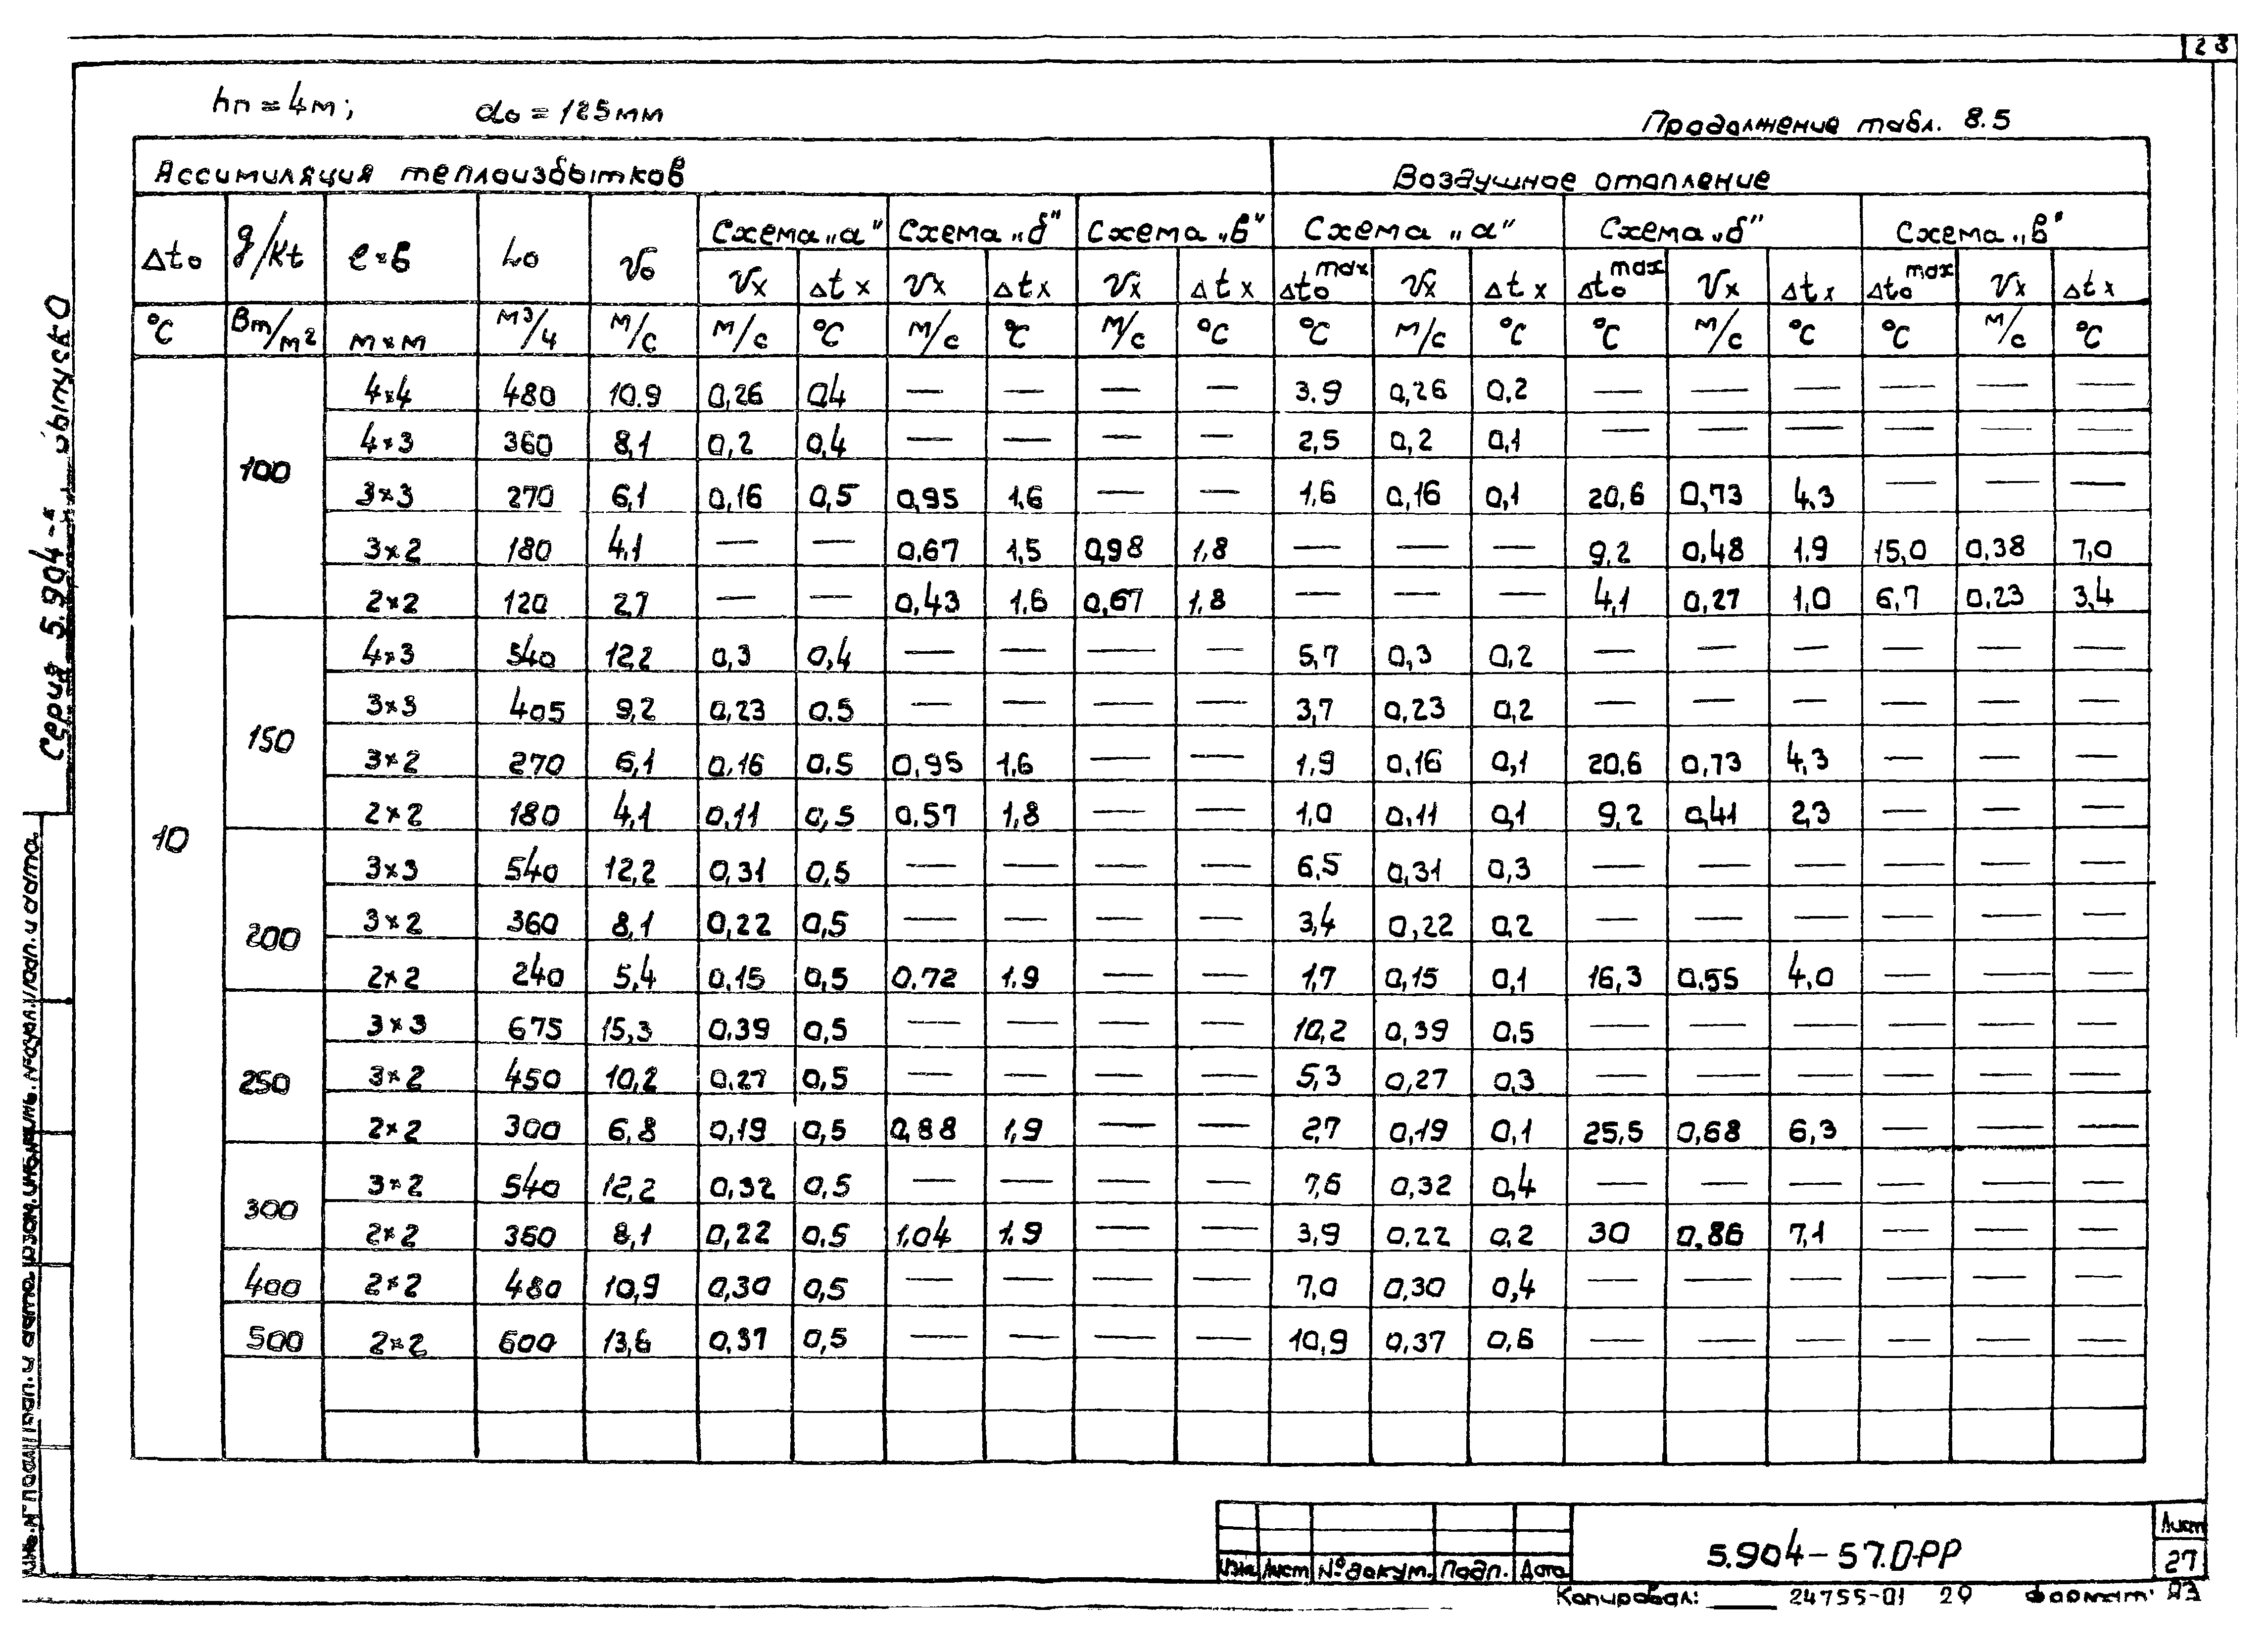 28
hп = 4м; do = 125мм
Продолжение табл. 8.5
Ассимиляция теплоизбытков Воздушное отопление
Δto q/Kt l×b Lo Vo Схема „а" Схема „б" Схема „в" Схема „а" Схема „б" Схема „в"
Vx Δtx Vx Δtx Vx Δtx Δto max Vx Δtx Δto max Vx Δtx Δto max Vx Δtx
°С Вт/м² м×м м³/ч м/с м/с °С м/с °С м/с °С °С м/с °С °С м/с °С °С м/с °С
10
100
4×4 480 10.9 0,26 0,4 — — — — 3.9 0,26 0,2 — — — — — —
4×3 360 8,1 0,2 0,4 — — — — 2,5 0,2 0,1 — — — — — —
3×3 270 6,1 0,16 0,5 0,95 1,6 — — 1,6 0,16 0,1 20,6 0,73 4,3 — — —
3×2 180 4,1 — — 0,67 1,5 0,98 1,8 — — — 9,2 0,48 1,9 15,0 0,38 7,0
2×2 120 2,7 — — 0,43 1,6 0,67 1,8 — — — 4,1 0,27 1,0 6,7 0,23 3,4
150
4×3 540 12,2 0,3 0,4 — — — — 5,7 0,3 0,2 — — — — — —
3×3 405 9,2 0,23 0.5 — — — — 3,7 0,23 0,2 — — — — — —
3×2 270 6,1 0,16 0.5 0,95 1,6 — — 1,9 0,16 0,1 20,6 0,73 4,3 — — —
2×2 180 4,1 0,11 0,5 0,57 1,8 — — 1,0 0,11 0,1 9,2 0,41 2,3 — — —
200
3×3 540 12,2 0,31 0,5 — — — — 6,5 0,31 0,3 — — — — — —
3×2 360 8,1 0,22 0,5 — — — — 3,4 0,22 0,2 — — — — — —
2×2 240 5,4 0,15 0,5 0,72 1,9 — — 1,7 0,15 0,1 16,3 0,55 4,0 — — —
250
3×3 675 15,3 0,39 0,5 — — — — 10,2 0,39 0,5 — — — — — —
3×2 450 10,2 0,27 0,5 — — — — 5,3 0,27 0,3 — — — — — —
2×2 300 6,8 0,19 0,5 0,88 1,9 — — 2,7 0,19 0,1 25,5 0,68 6,3 — — —
300
3×2 540 12,2 0,32 0,5 — — — — 7,6 0,32 0,4 — — — — — —
2×2 360 8,1 0,22 0,5 1,04 1,9 — — 3,9 0,22 0,2 30 0,86 7,1 — — —
400 2×2 480 10,9 0,30 0,5 — — — — 7,0 0,30 0,4 — — — — — —
500 2×2 600 13,6 0,37 0,5 — — — — 10,9 0,37 0,6 — — — — — —
Серия 5.904- выпуск 0
Инв. № подл. Подп. и дата Взам. инв. № Инв. № дубл. Подп. и дата
Изм Лист № докум. Подп. Дата
5.904-57.0-РР
Лист
27
Копировал: 24755-01 29 Формат: А3